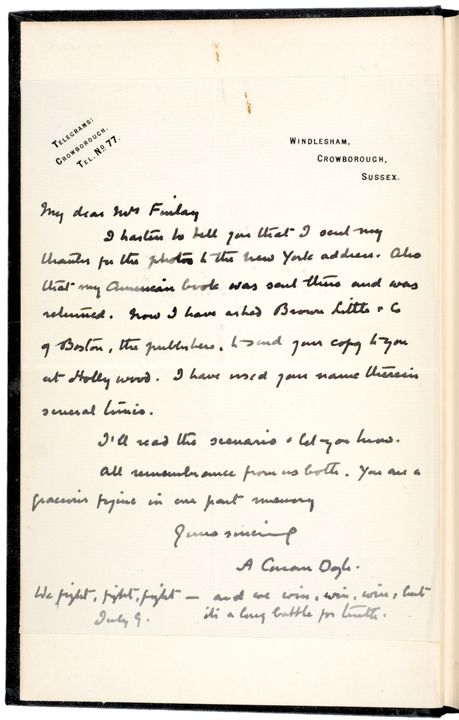 TELEGRAMS:
CROWBOROUGH.
TEL. No. 77.
WINDLESHAM,
CROWBOROUGH,
SUSSEX.
My dear Mrs Finlay
I hasten to tell you that I sent my
thanks for the photos to the New York address. Also
that my American book was sent there and was
returned. Now I have asked Brown Little & Co
of Boston, the publishers, to send your copy to you
at Hollywood. I have used your name therein
several times.
I'll read the scenario & let you know.
All remembrance from us both. You are a
gracious figure in our past memory
Yours sincerely
A Conan Doyle.
We fight, fight, fight — and we win, win, win, but
July 9. it's a long battle for truth.